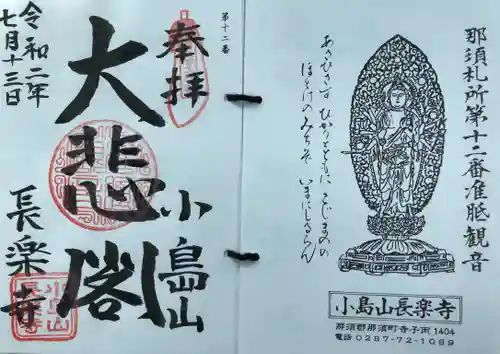 那須札所第十二番准胝観音
あさひさす ひかりとともに こじまの
ほとけの みちを いまにしるらん
小島山長楽寺
那須郡那須町寺子丙1404
電話0287-72-1089
第十二番
奉拝
小島山
大悲閣
長楽寺
令和二年
七月十三日
小島山
長楽寺